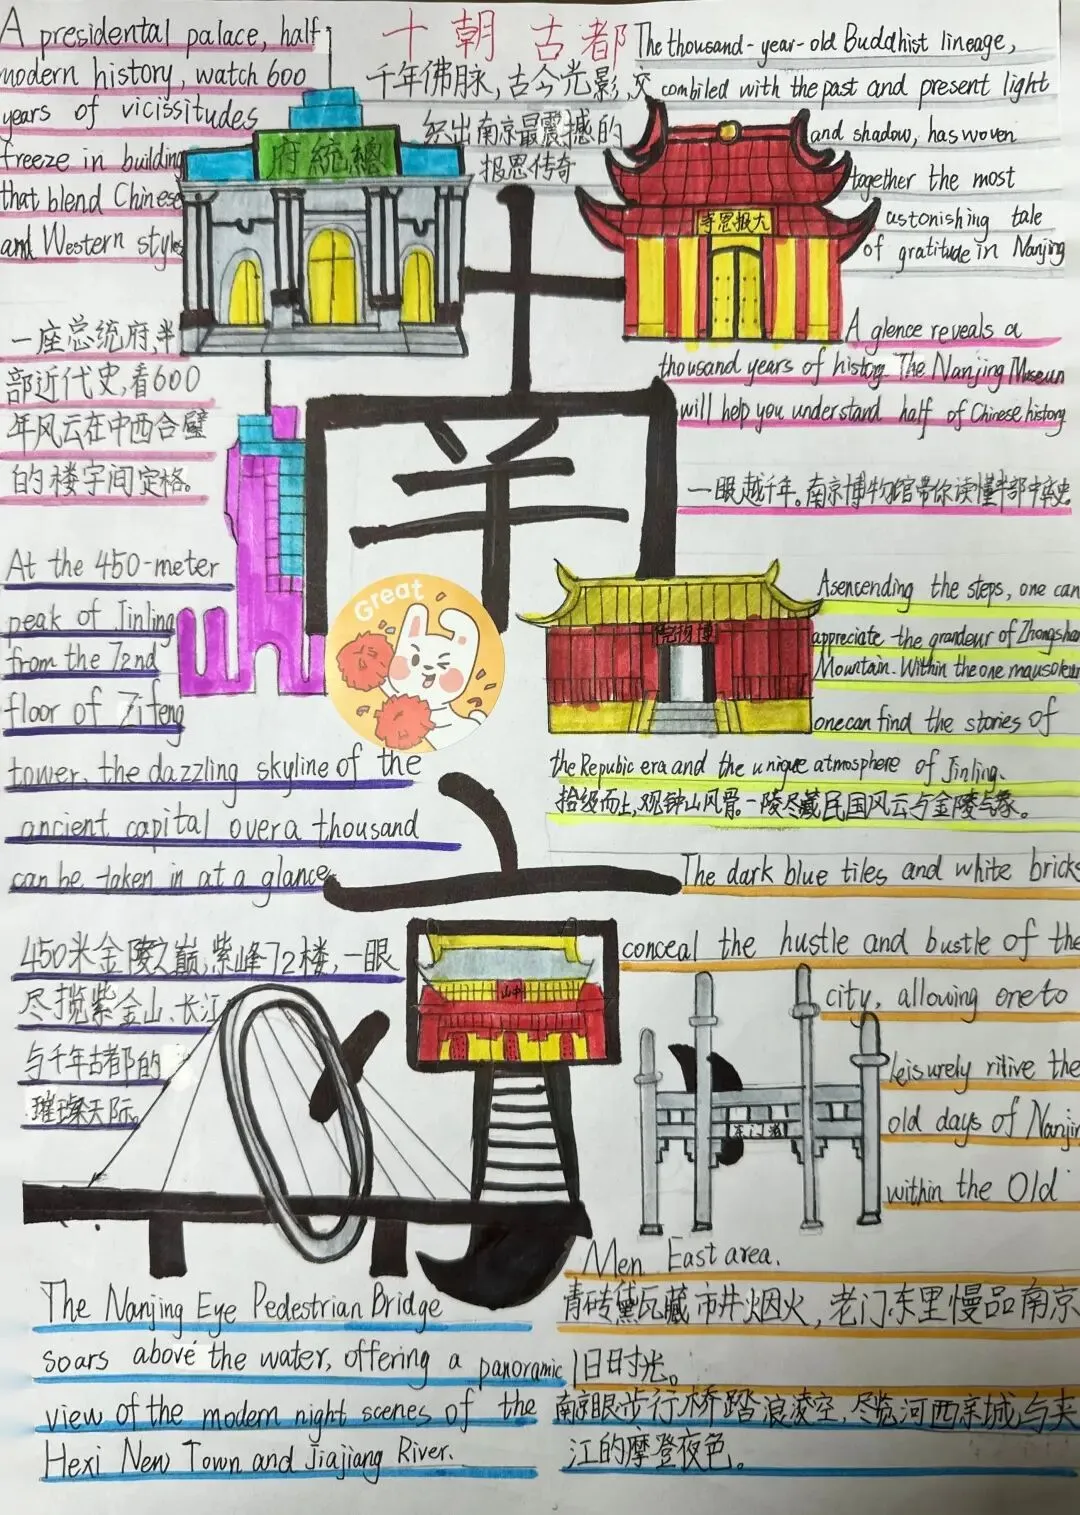 十朝古都
千年佛脉,古今光影,交
织出南京最震撼的
报恩传奇
A presidental palace, half
modern history, watch 600
years of vicissitudes
freeze in building
that blend Chinese
and Western styles
The thousand-year-old Buddhist lineage,
combiled with the past and present light
and shadow, has woven
together the most
astonishing tale
of gratitude in Nanjing
府統總
寺恩报大
一座总统府,半
部近代史,看600
年风云在中西合璧
的楼宇间定格。
A glence reveals a
thousand years of history. The Nanjing Museun
will help you understand half of Chinese history
一眼越千年。南京博物馆带你读懂半部中华史
南京
Great
At the 450-meter
peak of Jinling
from the 72nd
floor of Zifeng
tower, the dazzling skyline of the
ancient capital over a thousand
can be taken in at a glance
院物博
Asencending the steps, one can
appreciate the grandeur of Zhongshan
Mountain. Within the one mausoleum
one can find the stories of
the Repubic era and the unique atmosphere of Jinling.
拾级而上,观钟山风骨。一陵尽藏民国风云与金陵气象。
450米金陵之巅,紫峰72楼,一眼
尽揽紫金山、长江
与千年古都的
璀璨天际。
山中
The dark blue tiles and white bricks
conceal the hustle and bustle of the
city, allowing one to
leisurely rilive the
old days of Nanjin
within the Old
Men East area.
东门老
青砖黛瓦藏市井烟火,老门东里慢品南京
旧时光。
The Nanjing Eye Pedestrian Bridge
soars above the water, offering a panoramic
view of the modern night scenes of the
Hexi New Town and Jiajiang River.
南京眼步行桥踏浪凌空,尽览河西亲城与夹
江的摩登夜色。